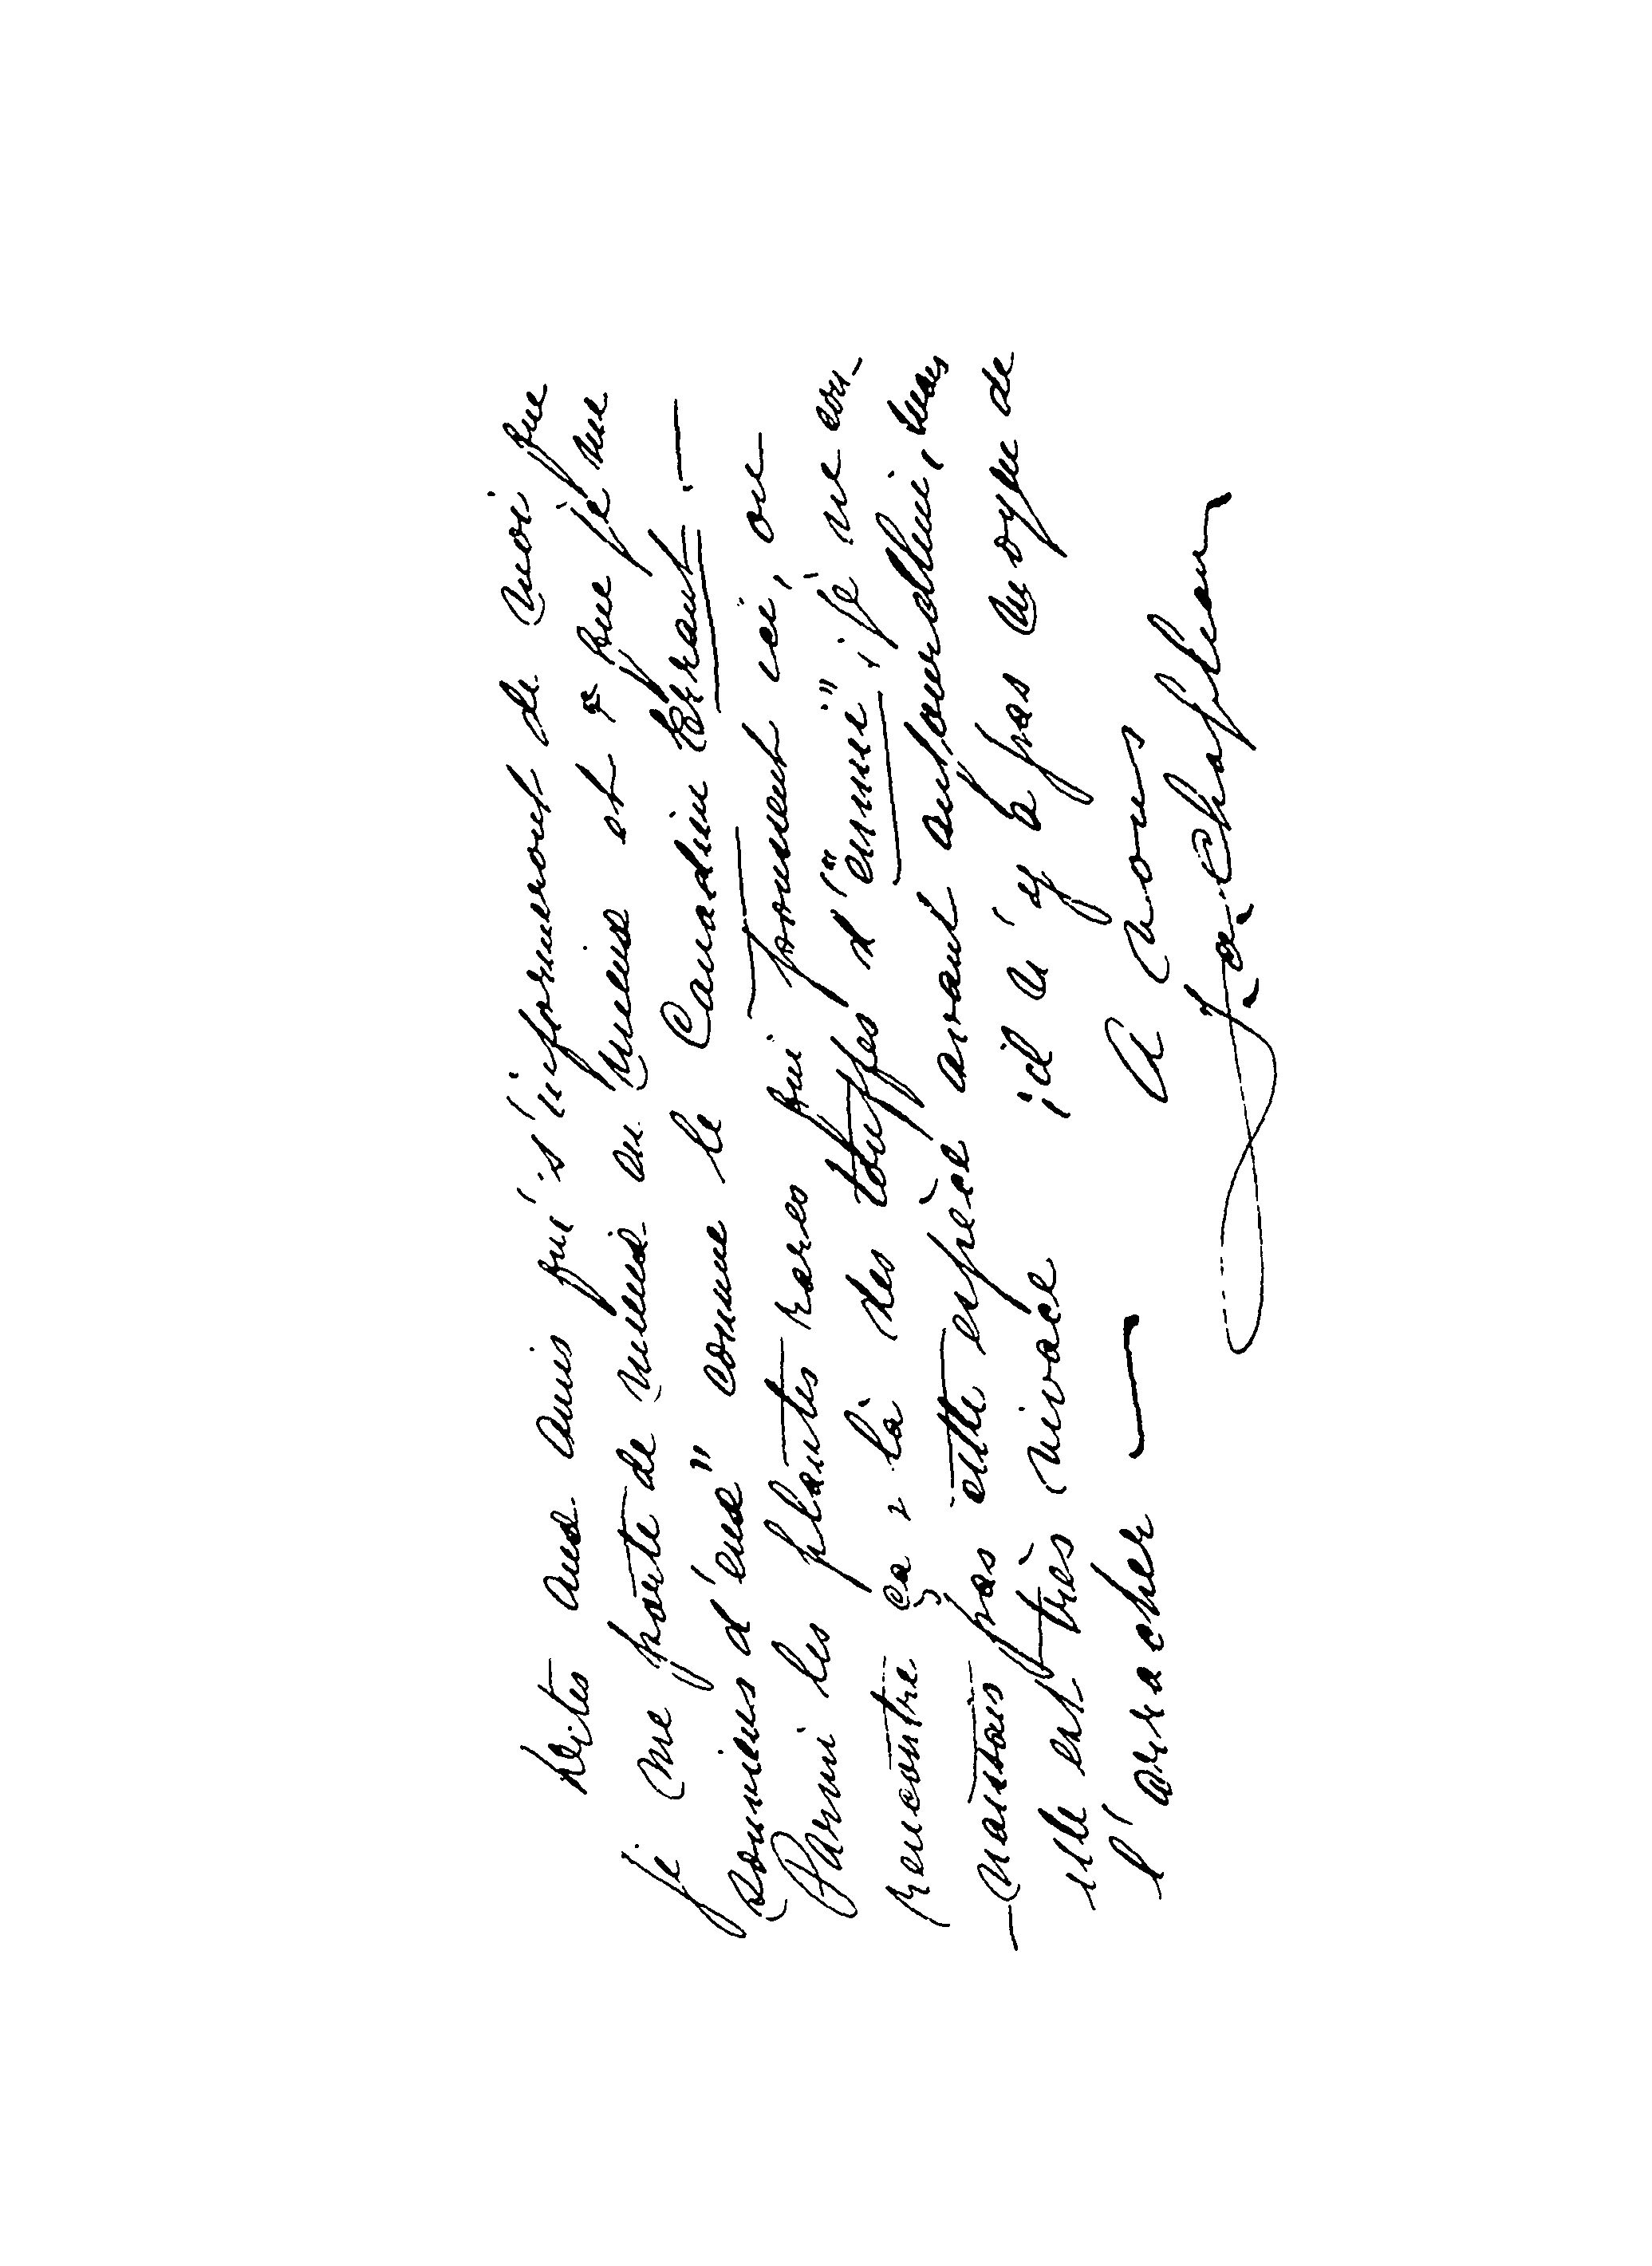 Dites aux amis qui s'informeront de moi que
je me porte de mieux en mieux et & que je me
souviens d'eux" comme le Canadien Errant. —
Parmi les plantes rares qui poussent ici, on
rencontre ça & là des touffes d'"ennui"; je ne con-
-naissais pas cette espèce avant aujourd'hui, mais
elle est très vivace; il n'y a pas moyen de
l'arracher —
A vous
J. A. Chapleau